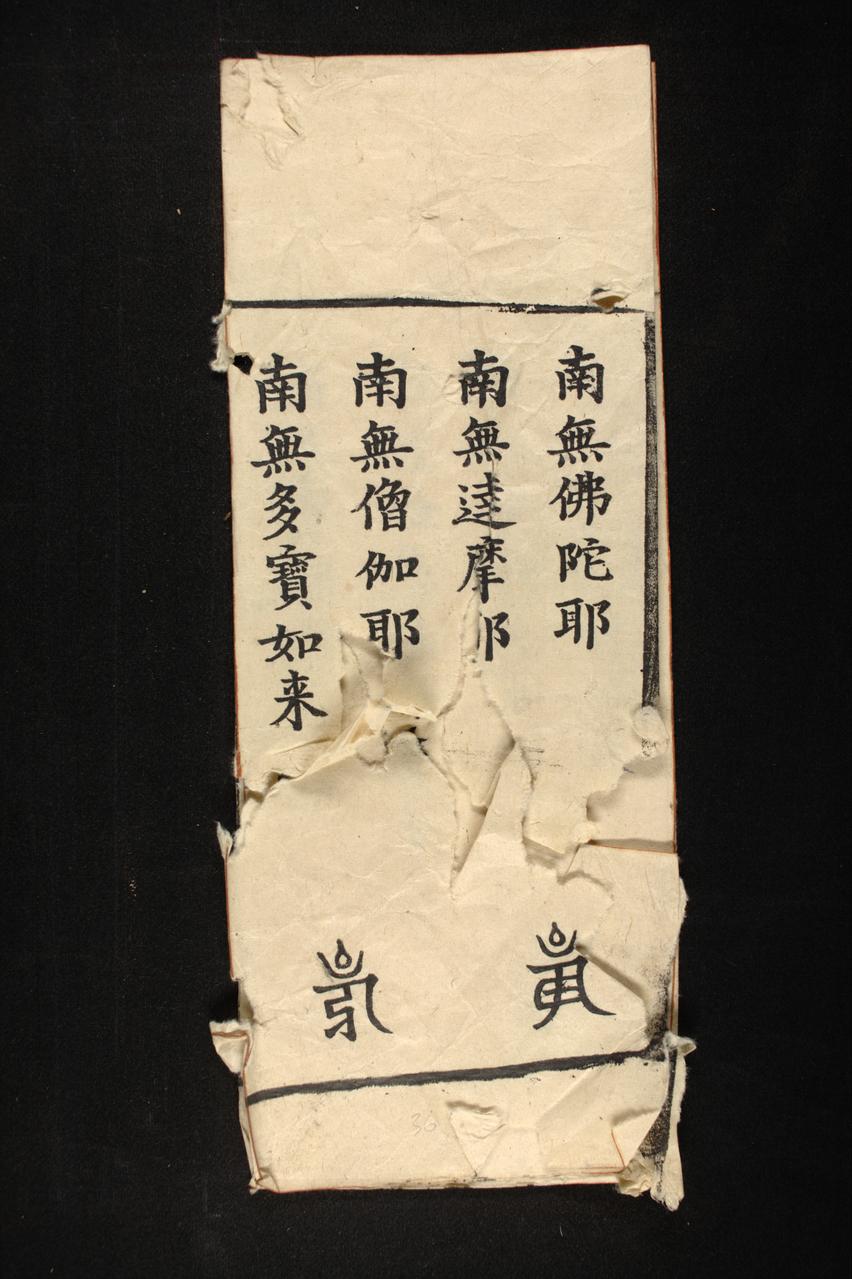 南無佛陀耶
南無達摩耶
南無僧伽耶
南無多寶如来